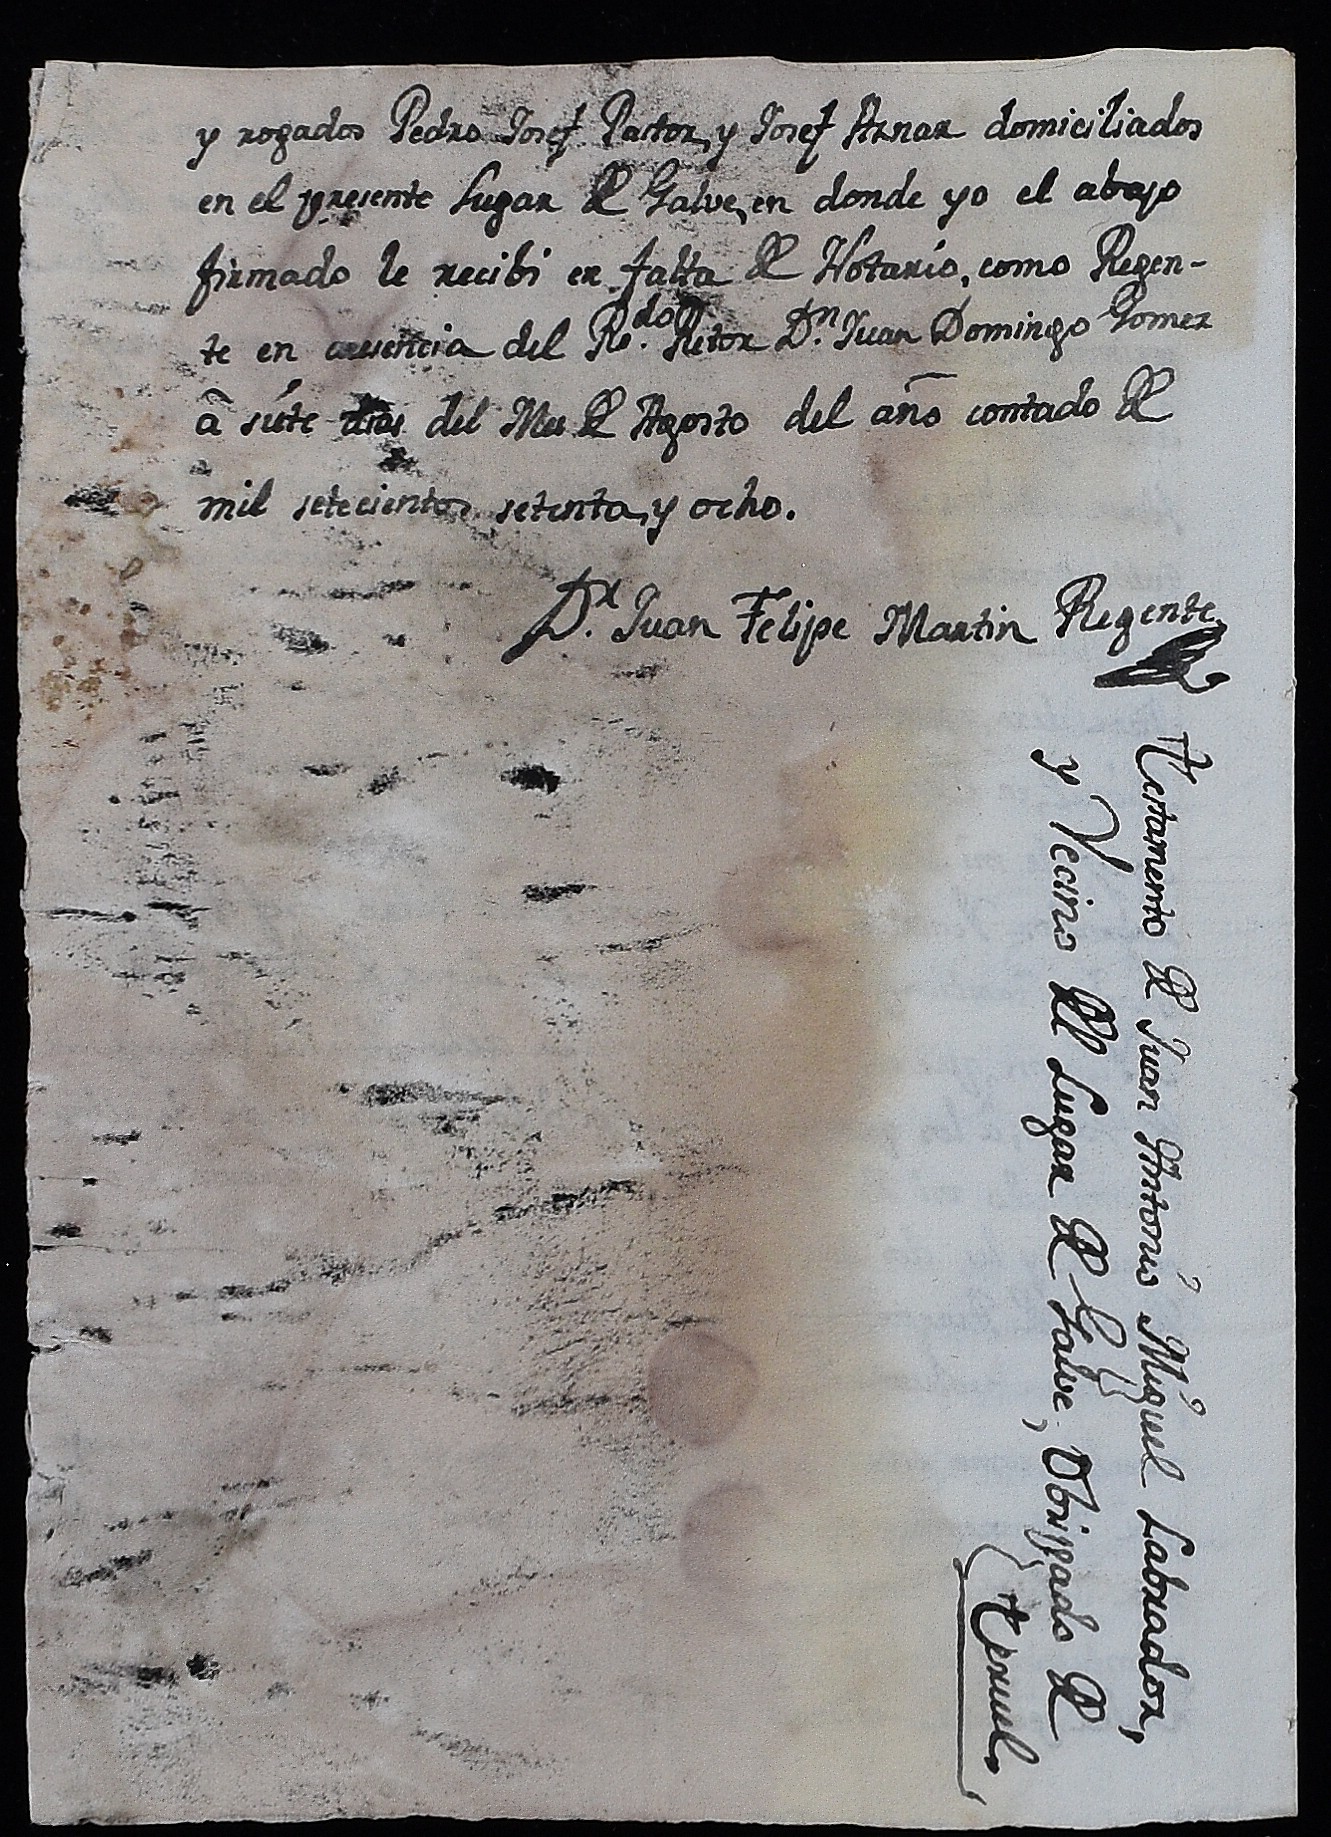 y rogados Pedro Josef Pastor, y Josef Arnar domiciliados
en el presente Lugar de Galve, en donde yo el abajo
firmado le recibi en falta de Notario, como Regen-
te en presencia del Rdo. Retor Dn. Juan Domingo Gomez
â siete dias del Mes de Agosto del año contado de
mil setecientos setenta, y ocho.
Dr. Juan Felipe Martin Regente
Testamento de Juan Antonio Miguel Labrador,
y Vecino del Lugar de Galve, Obispado de
Teruel.